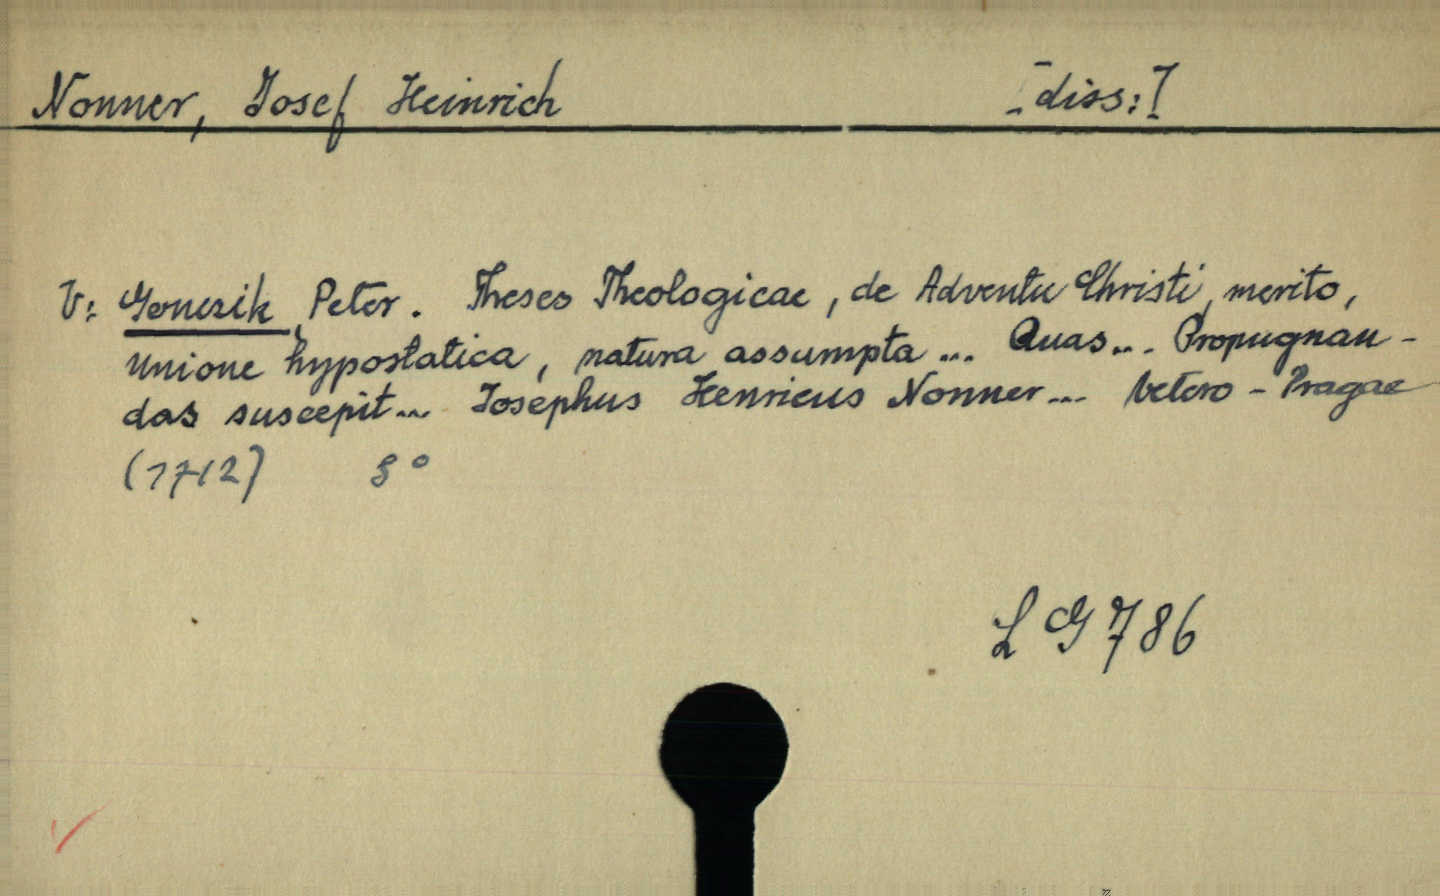 Nonner, Josef Heinrich [diss:]
V: Gonczik, Peter. Theses Theologicae, de Adventu Christi, merito,
unione hypostatica, natura assumpta ... Quas ... Propugnan-
das suscepit ... Josephus Henricus Nonner ... Vetero-Pragae
(1712) 8°
L G 786